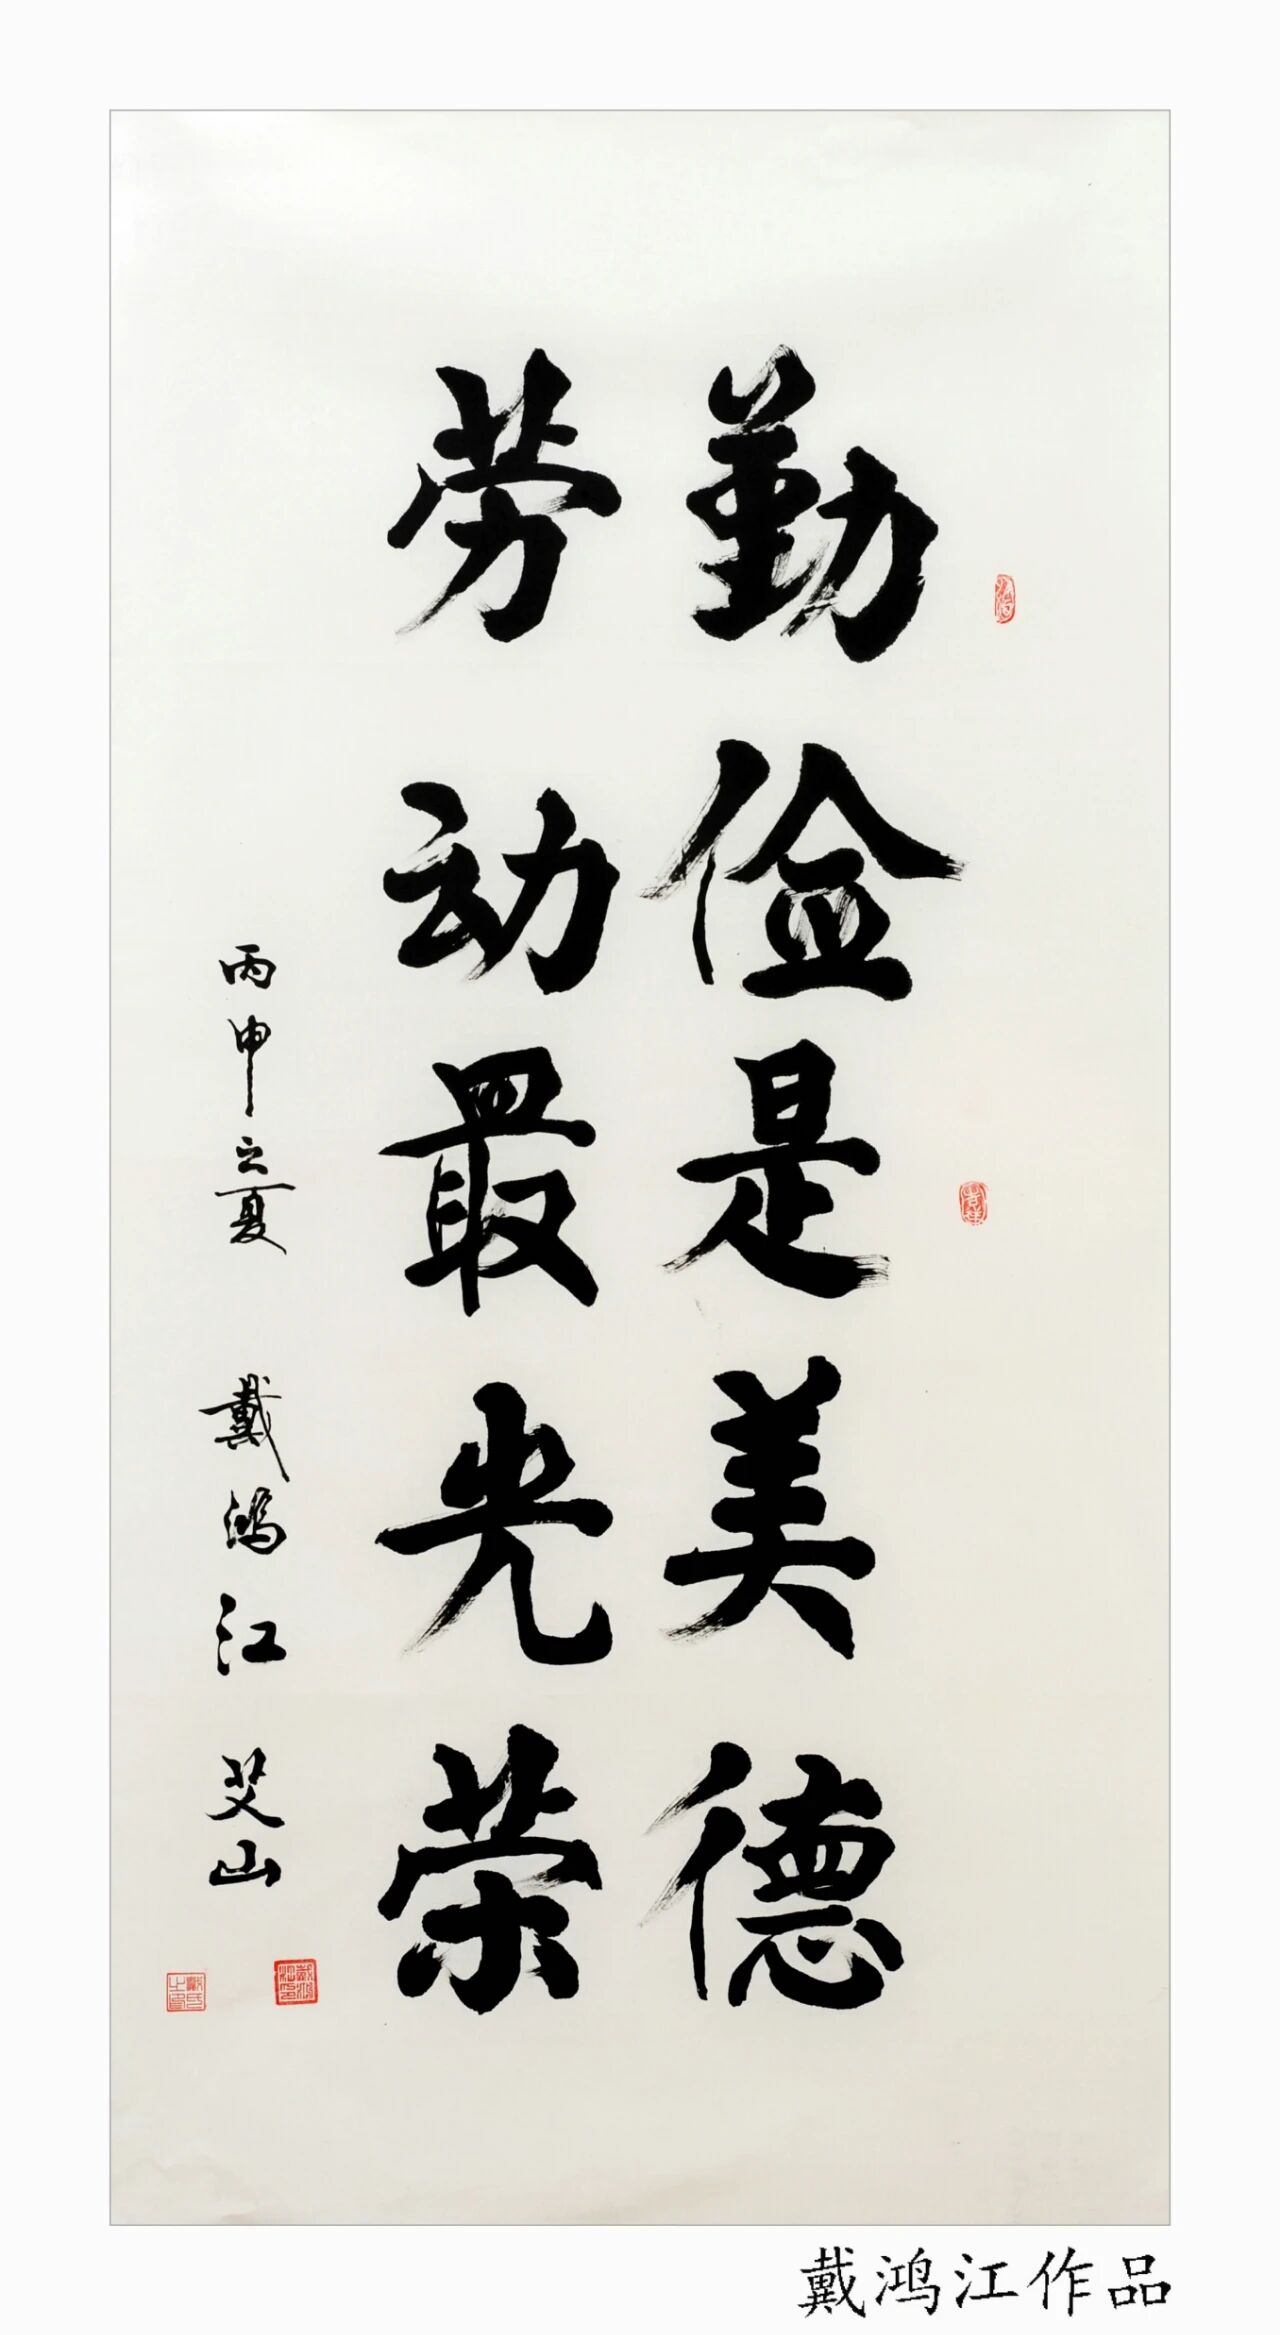 勤俭是美德
劳动最光荣
丙申之夏 戴鸿江 艾山
戴鸿江作品